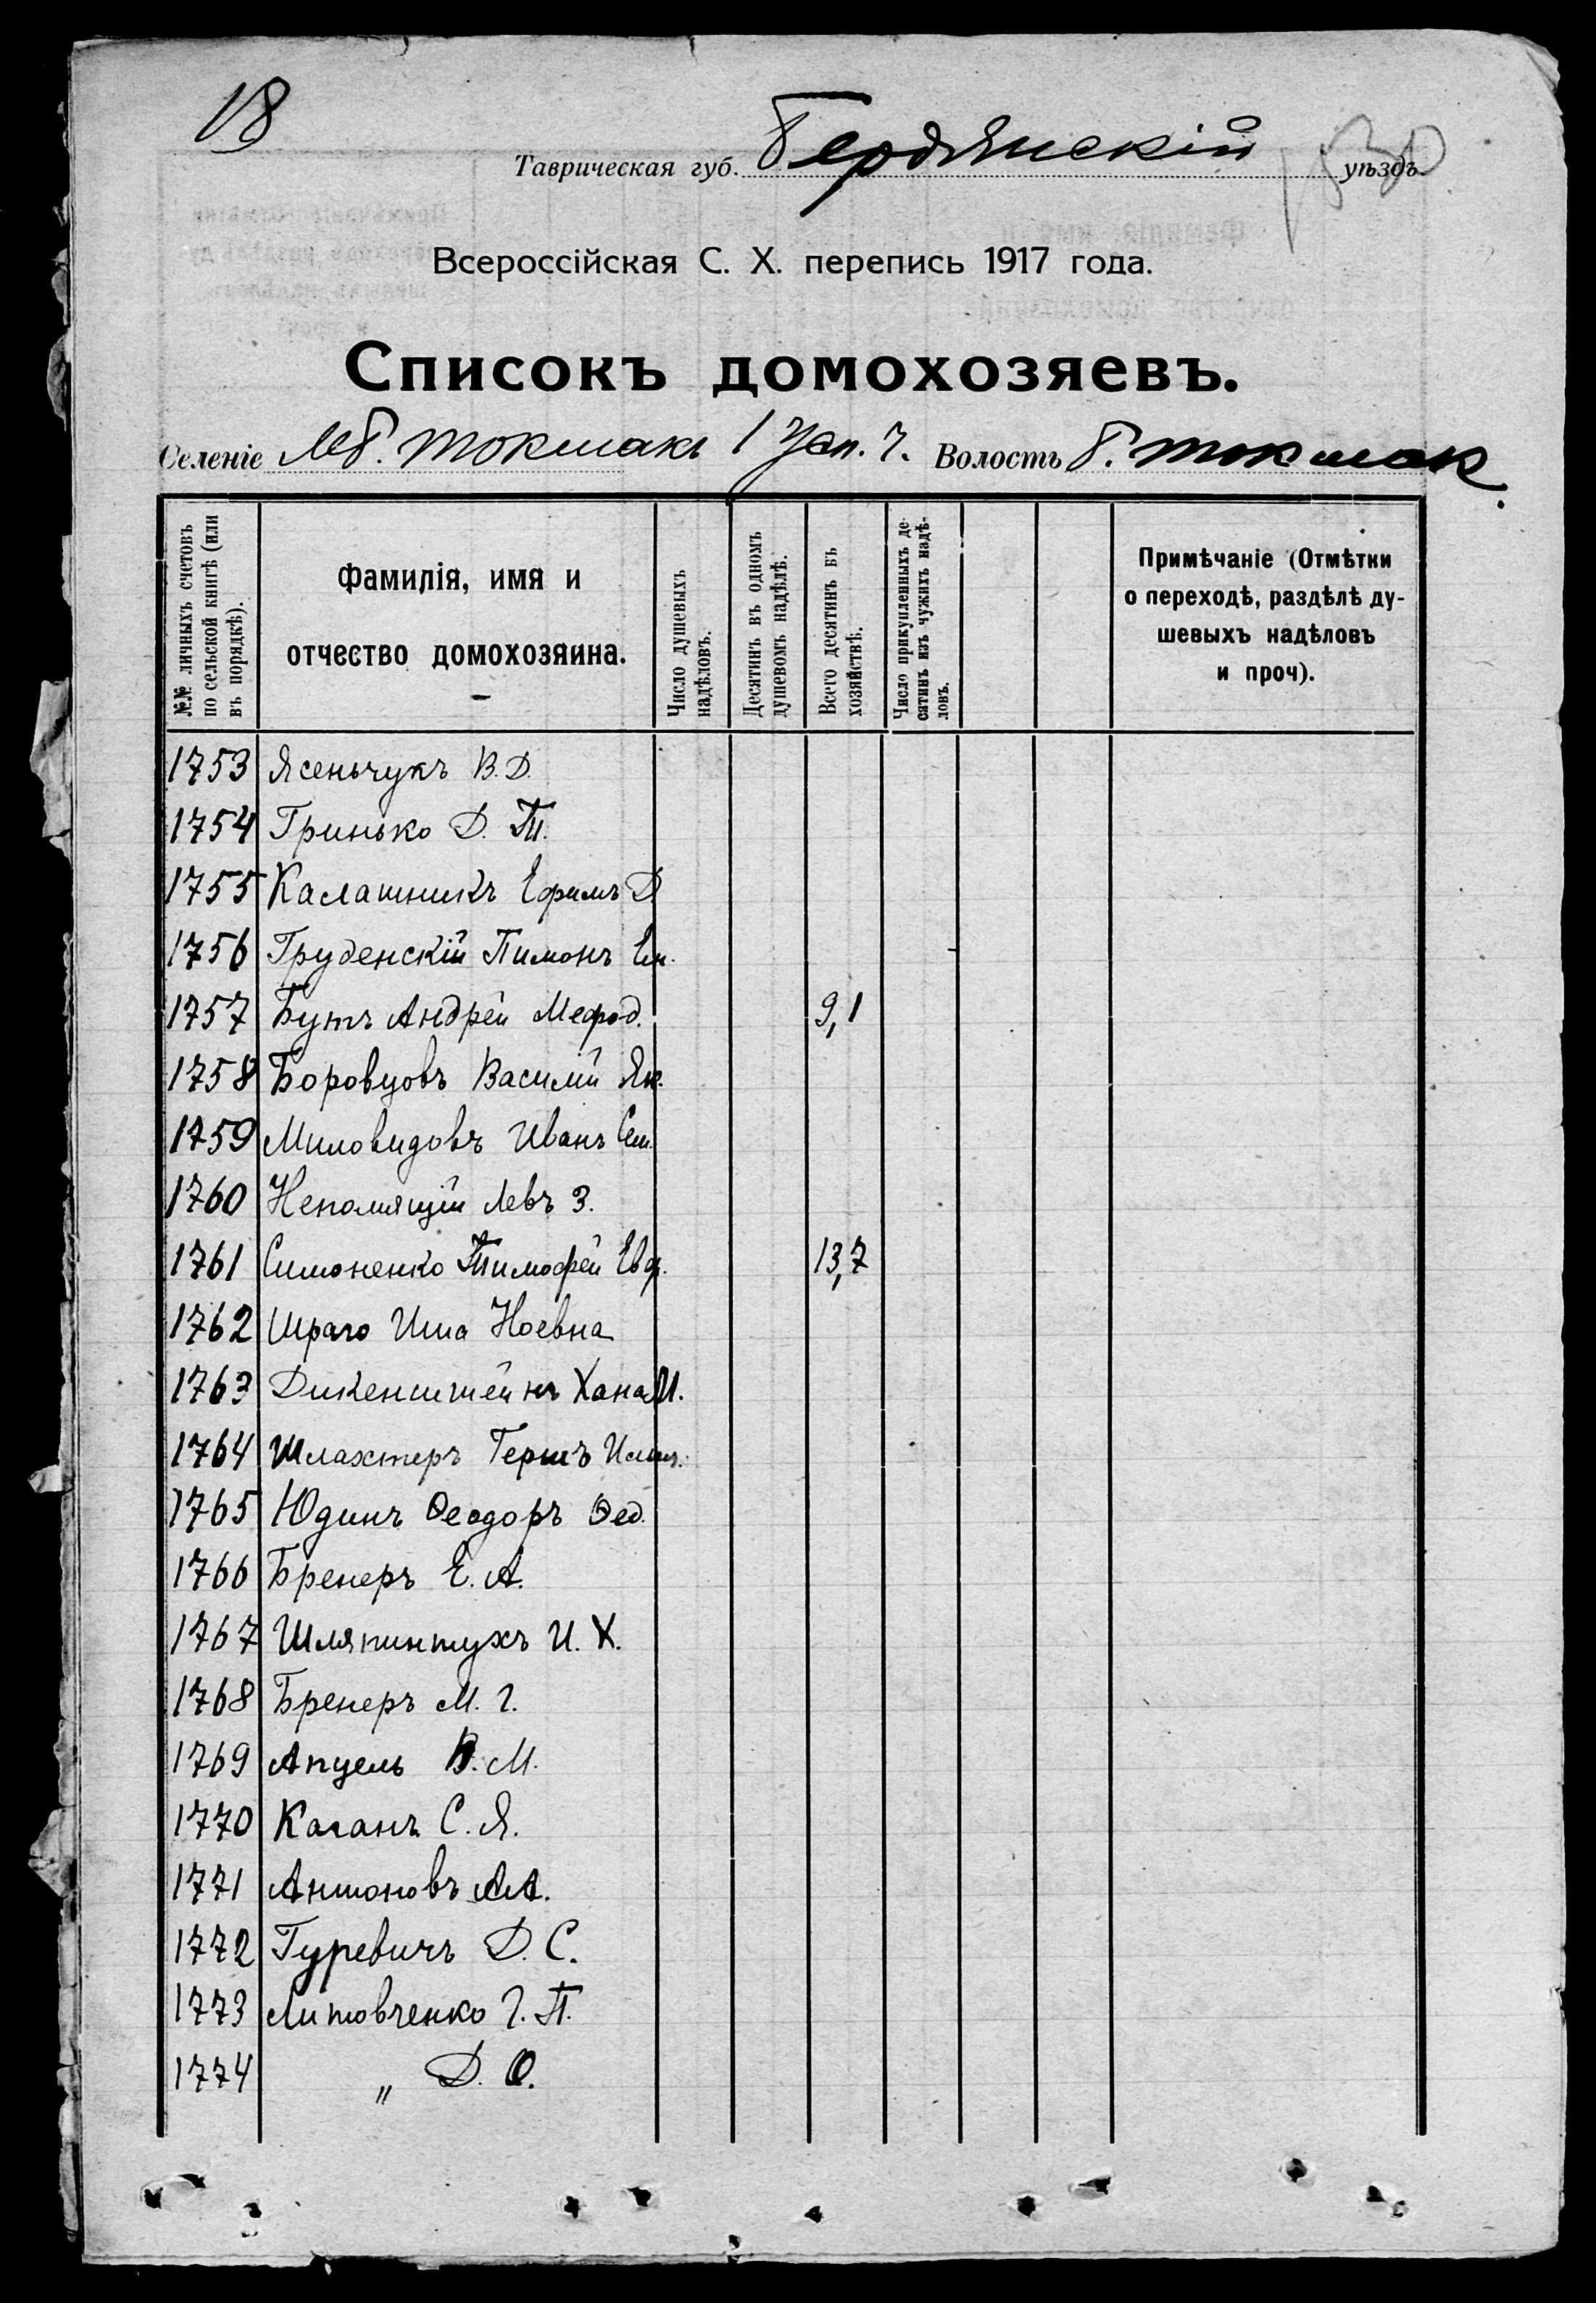 18
Таврическая губ. Бердянскій уѣздъ
130
Всероссійская С. Х. перепись 1917 года.
Списокъ домохозяевъ.
Селеніе Мб. Токмакъ 1 Усп. ч. Волость Б. Токмак.
№№ личныхъ счетовъ по сельской книгѣ (или въ порядкѣ).
Фамилія, имя и отчество домохозяина.
Число душевыхъ надѣловъ.
Десятинъ въ одномъ душевомъ надѣлѣ.
Всего десятинъ въ хозяйствѣ.
Число прикупленныхъ десятинъ изъ чужихъ надѣловъ.
Примѣчаніе (Отмѣтки о переходѣ, раздѣлѣ душевыхъ надѣловъ и проч).
1753 Ясеньчукъ В. Д.
1754 Гринько Д. Т.
1755 Калашникъ Ефимъ Д
1756 Груденскій Пимонъ Ем.
1757 Бутъ Андрей Мефод. 9,1
1758 Боровцовъ Василій Як.
1759 Миловидовъ Иванъ Сем.
1760 Непомящій Левъ З.
1761 Симоненко Тимофей Евф. 13,7
1762 Шраго Има Ноевна
1763 Дикенштейнъ Хана И.
1764 Шлахтеръ Гершъ
1765 Юдинъ Ѳеодоръ Ѳед.
1766 Бренеръ Е. А.
1767 Шляпинтухъ И. Х.
1768 Бренеръ М. Г.
1769 Апцель В. М.
1770 Каганъ С. Я.
1771 Антоновъ А. А.
1772 Гуревичъ Д. С.
1773 Литовченко Г. П.
1774 „ Д. О.